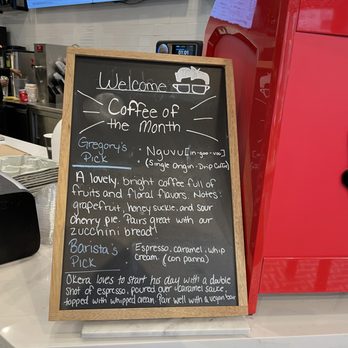 Welcome
Coffee of
the Month
Gregory's
Pick
· Nguvu [in-goo-vu]
(Single Origin-Drip Coffee)
A lovely, bright coffee full of
fruits and floral flavors. Notes:
grapefruit, honey suckle, and sour
cherry pie. Pairs great with our
zucchini bread!
Barista's
Pick
· Espresso, caramel, whip
cream (con panna)
Okera loves to start his day with a double
shot of espresso, poured over caramel sauce,
topped with whipped cream. Pair well with a vegan bar